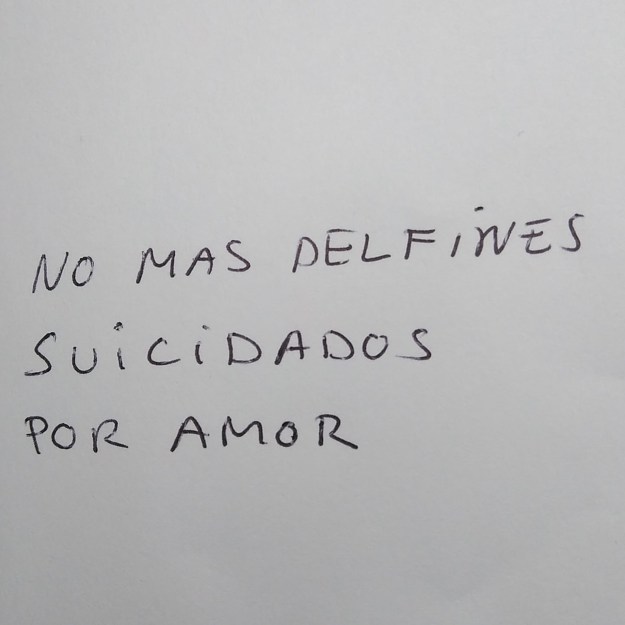 NO MAS DELFINES
SUICIDADOS
POR AMOR